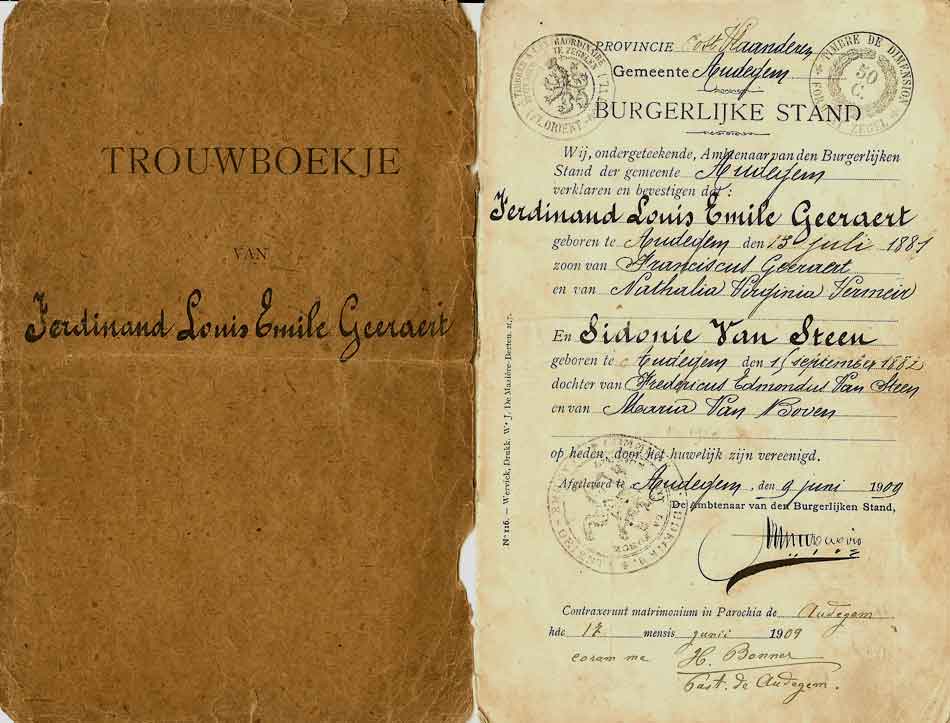 TROUWBOEKJE
VAN
Ferdinand Louis Emile Geeraert
PROVINCIE Oost Vlaanderen
Gemeente Audegem
BURGERLIJKE STAND
TIMBRE DE DIMENSION
50
C.
ZEGEL
Wij, ondergeteekende, Ambtenaar van den Burgerlijken
Stand der gemeente Audegem
verklaren en bevestigen dat :
Ferdinand Louis Emile Geeraert
geboren te Audegem den 13 juli 1881
zoon van Franciscus Geeraert
en van Nathalia Virginia Vermeir
En Sidonie Van Steen
geboren te Audegem den 15 september 1882
dochter van Fredericus Edmondus Van Steen
en van Maria Van Boven
op heden, door het huwelijk zijn vereenigd.
Afgeleverd te Audegem, den 9 juni 1909
De Ambtenaar van den Burgerlijken Stand,
Contraxerunt matrimonium in Parochia de Audegem
hdc 12 mensis junii 1909
coram me H. Bonner
Past. de Audegem.
Nº 116. — Wervick, Drukk. Wº J. De Mazière-Berten.